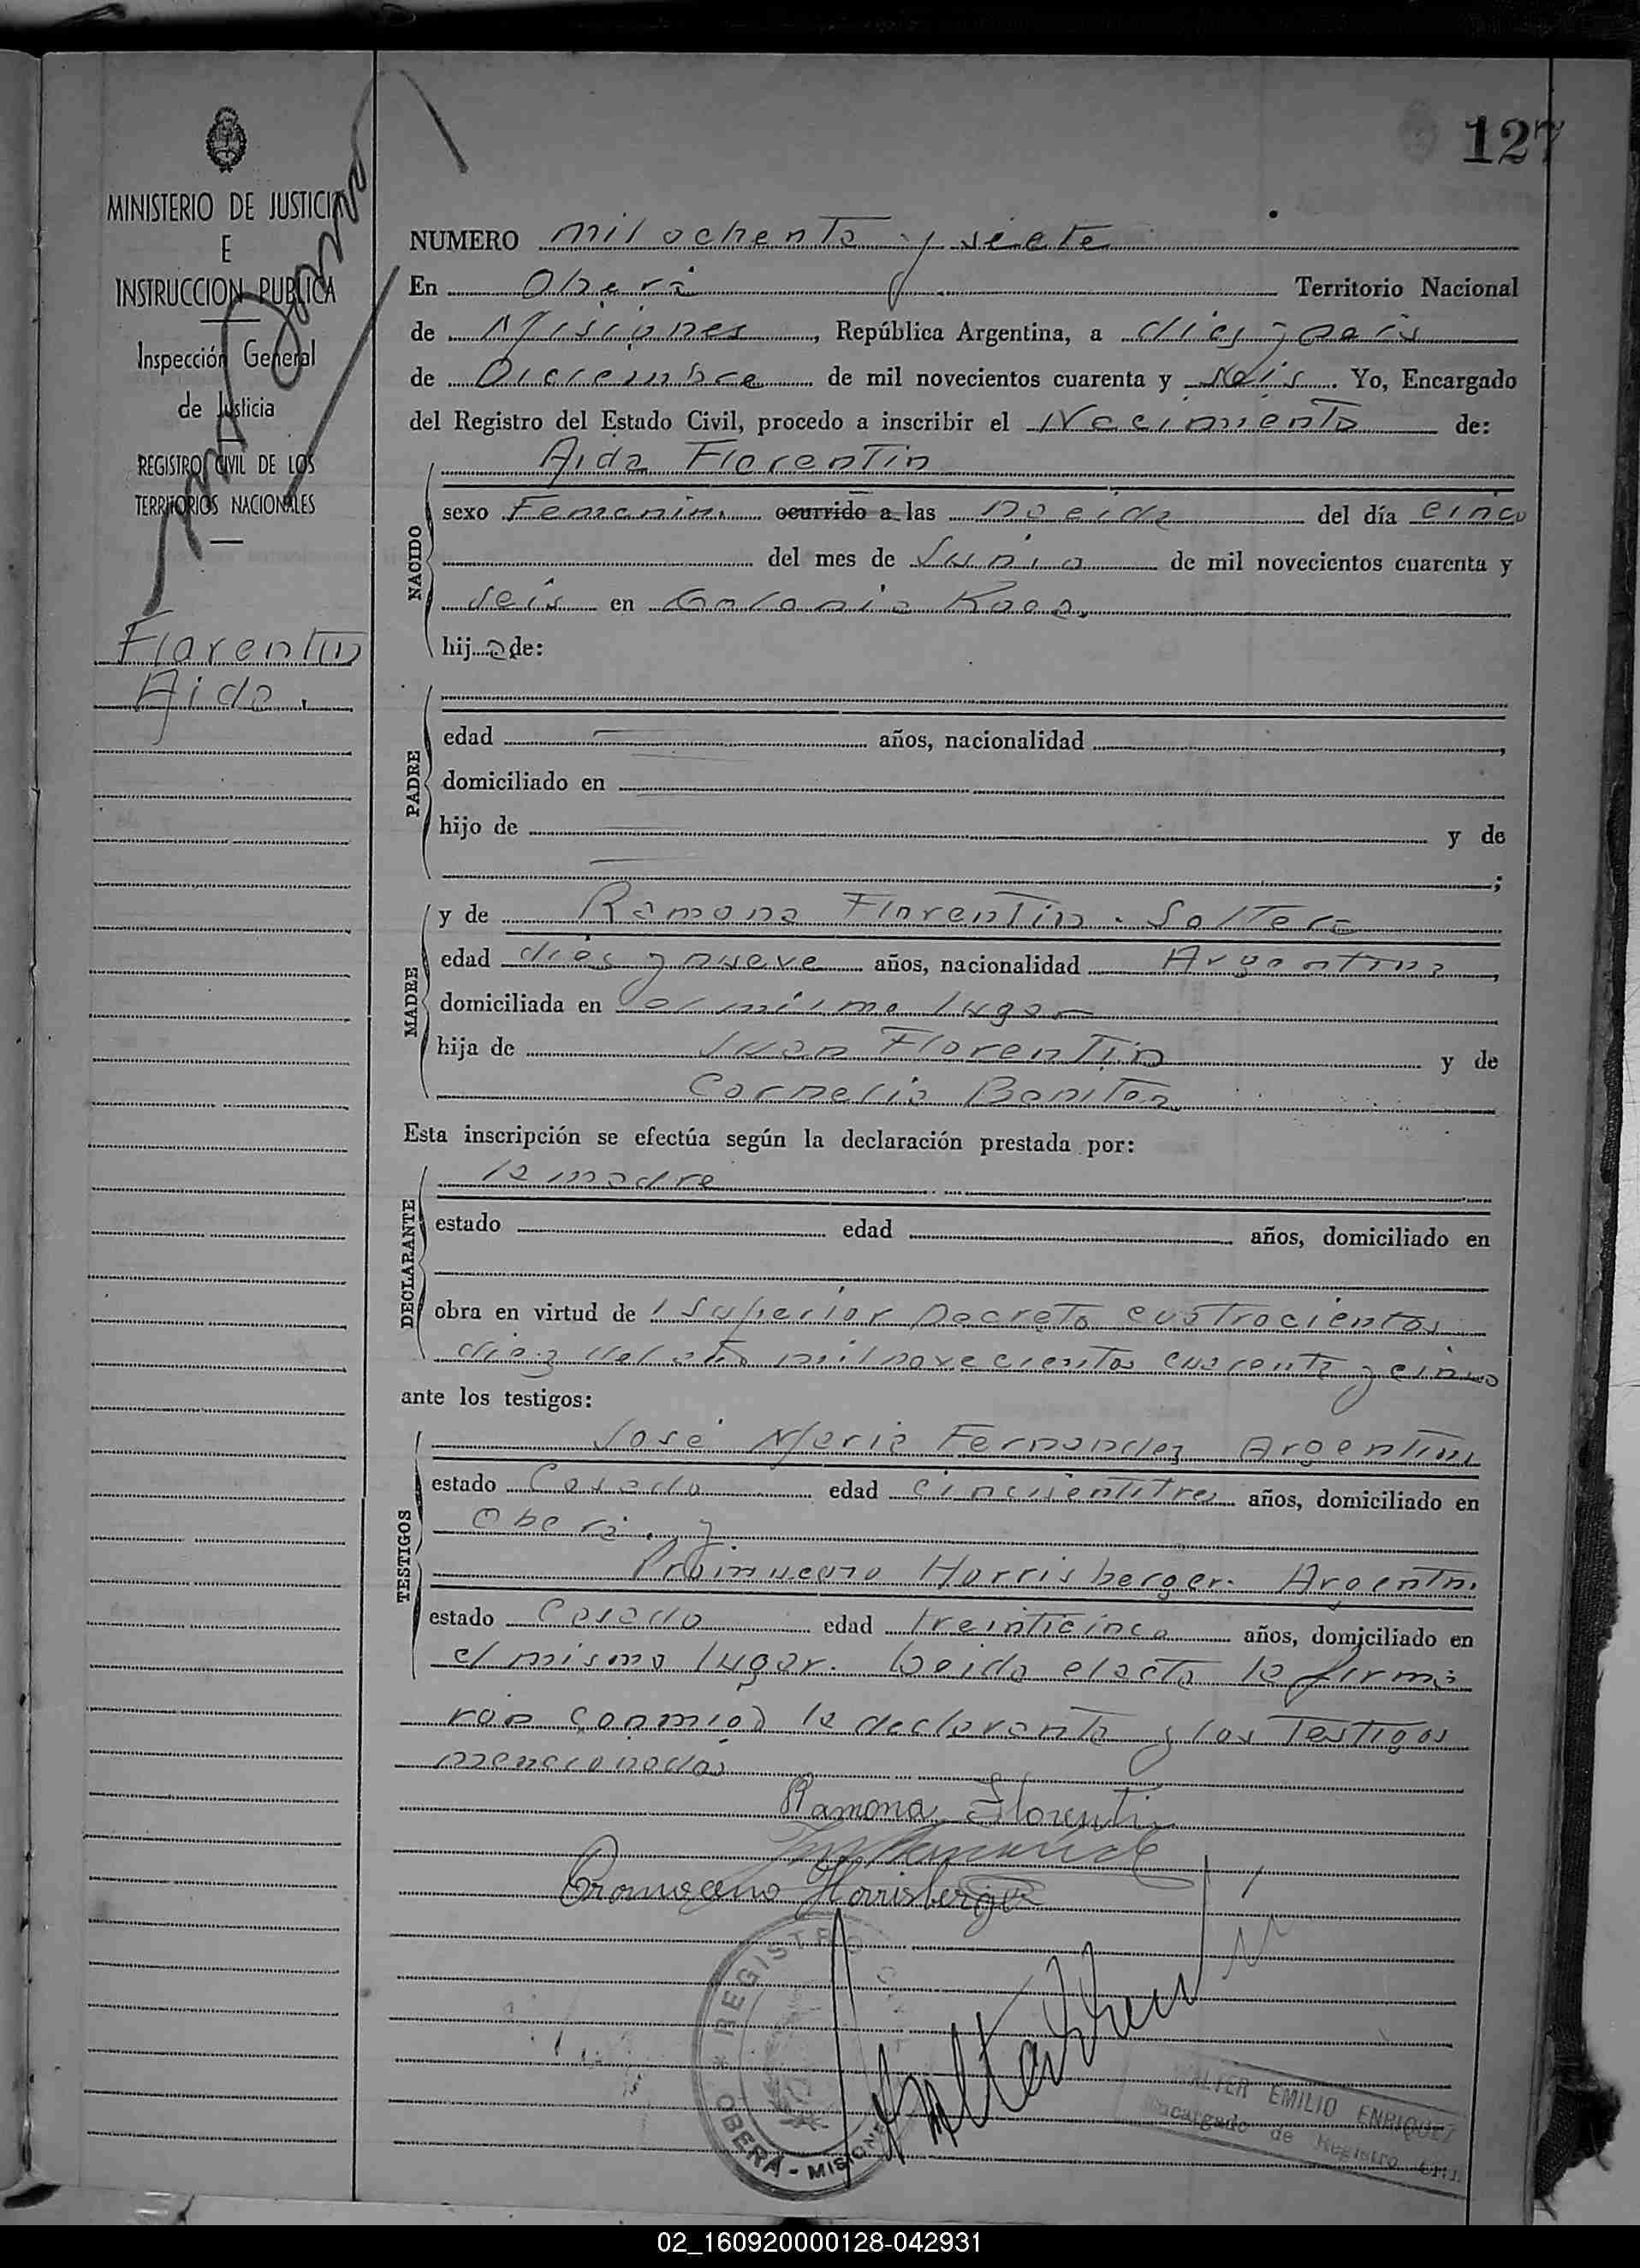 127
MINISTERIO DE JUSTICIA
E
INSTRUCCION PUBLICA
Inspección General
de Justicia
REGISTRO CIVIL DE LOS
TERRITORIOS NACIONALES
Florentin
Aida.
NUMERO mil ochenta y siete
En Oberá Territorio Nacional
de Misiones, República Argentina, a
de Diciembre de mil novecientos cuarenta y seis. Yo, Encargado
del Registro del Estado Civil, procedo a inscribir el Nacimiento de:
NACIDO
Aida Florentin
sexo Femenin. ocurrido a las del día cinco
del mes de Junio de mil novecientos cuarenta y
seis en Colonia
hija de:
PADRE
edad años, nacionalidad
domiciliado en
hijo de y de
;
MADRE
y de Ramona Florentin. Soltera
edad dies y nueve años, nacionalidad Argentina,
domiciliada en el mismo lugar
hija de Juan Florentin y de
Cornelia
Esta inscripción se efectúa según la declaración prestada por:
DECLARANTE
la madre
estado edad años, domiciliado en
obra en virtud de l Superior Decreto cuatrocientos
diez del año mil novecientos cuarenta y cinco
ante los testigos:
TESTIGOS
José Maria Fernandez Argentino
estado Casado edad cincuentitres años, domiciliado en
Oberá. y
Horrisberger. Argentn.
estado Casado edad treinticinco años, domiciliado en
el mismo lugar. Leida el acta la firma
ron conmigo la declarante y los Testigos
mencionados
Ramona Florentin
Horrisberger
REGISTRO
OBERÁ - MISIONES
WALTER EMILIO ENRIQUEZ
Encargado de Registro Civil
02_160920000128-042931